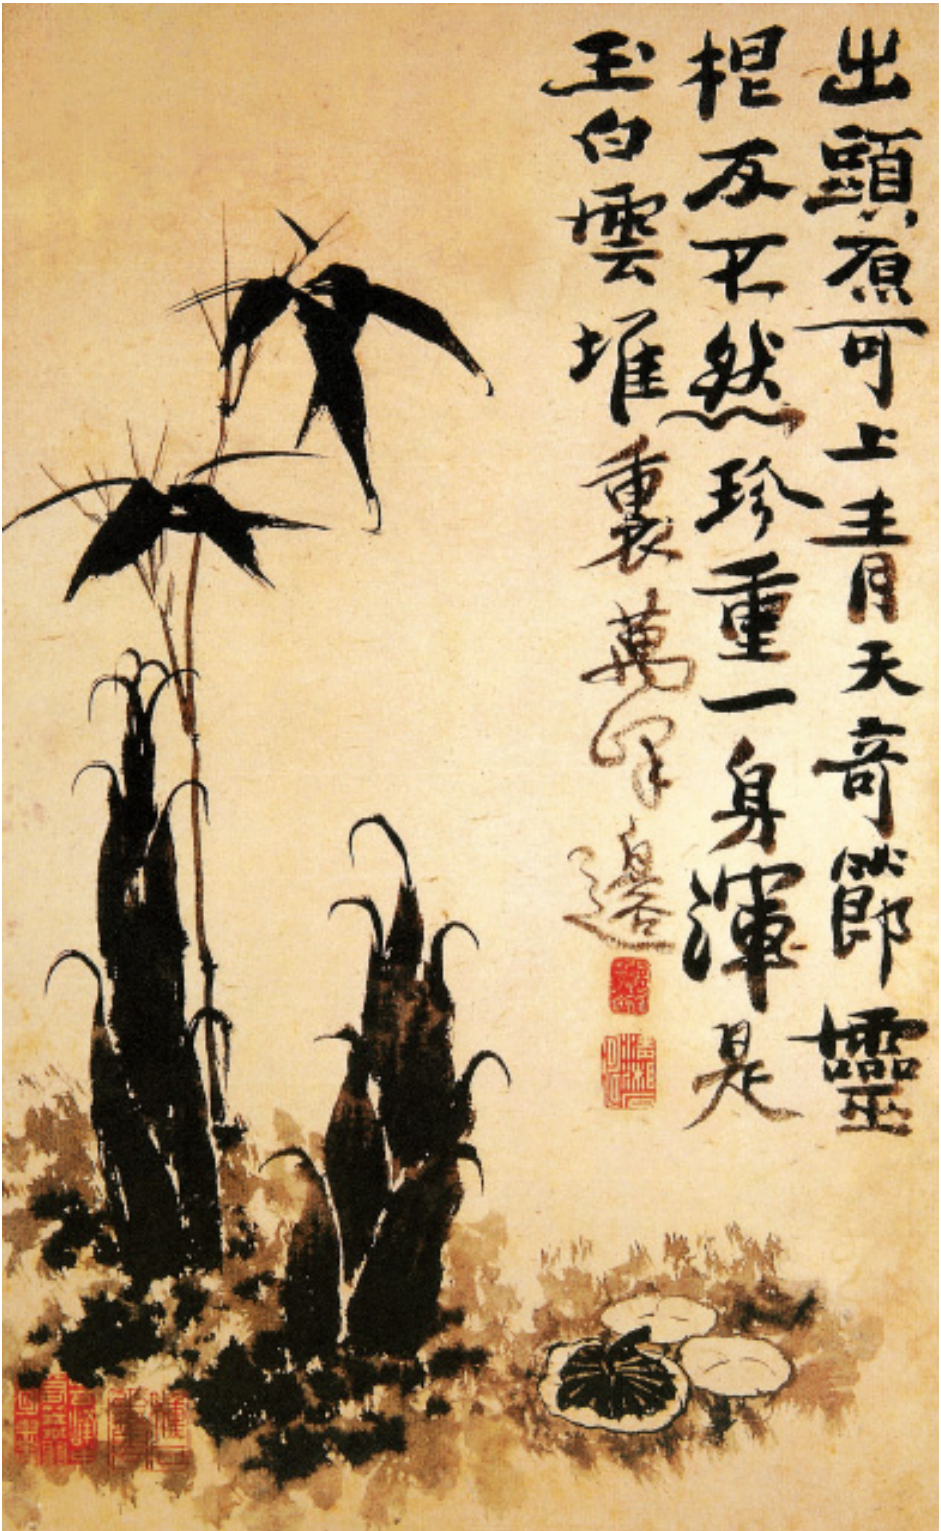 出頭原可上青天奇節靈
根反不然珍重一身渾是
玉白雲堆裏萬峰邊